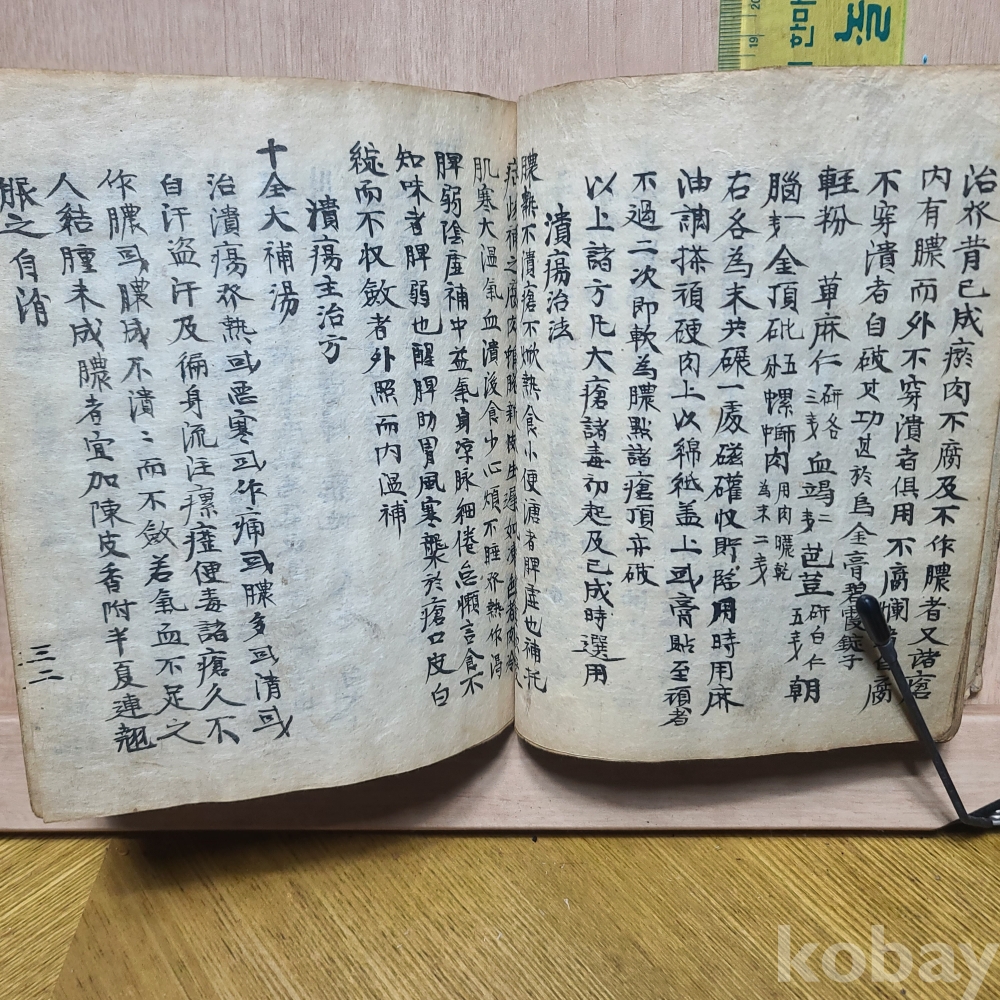 治發背已成瘀肉不腐及不作膿者又諸瘡
內有膿而外不穿潰者俱用不腐爛者自腐
不穿潰者自破其功甚於烏金膏碧霞錠子
輕粉 草麻仁 研各三戔 血竭 二戔 巴荳 研白仁五戔 朝
腦 一戔 金頂砒 五分 螺螄肉 用肉曬乾為末二戔
右各為末共碾一處磁罐收貯臨用時用麻
油調搽頑硬肉上以綿紙盖上或膏貼至頑者
不過二次即軟為膿點諸瘡頂亦破
以上諸方凡大瘡諸毒初起及已成時選用
潰瘍治法
膿熟不潰瘡不焮熱食小便溏者脾虛也補托
肌寒大温氣血潰後食少心煩不睡發熱作渴
脾弱陰虛補中益氣身凉脉細倦怠懶言食不
知味者脾弱也醒脾助胃風寒襲於瘡口皮白
綻而不収斂者外照而內温補
潰瘍主治方
十全大補湯
治潰瘍發熱或惡寒或作痛或膿多或清或
自汗盜汗及偏身流注瘰癧便毒諸瘡久不
作膿或膿成不潰〻而不斂若氣血不足之
人結腫未成膿者宜加陳皮香附半夏連翹
服之自消
三二
눈
한마
19
20
kobay